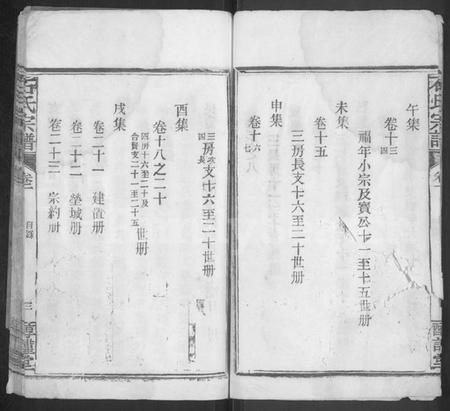 午集
卷十三四
福年小宗及寶公十一至十五世册
未集
卷十五
三房長支十六至二十世册
申集
卷十六七八
三房四長政支十六至二十世册
酉集
卷十八之二十
四房十六至二十及
合賢支二十一至二十五世册
戌集
卷二十一 建置册
卷二十二 塋城册
卷二十三 宗約册
石氏宗譜
卷二
目錄
三
石氏宗譜
卷二